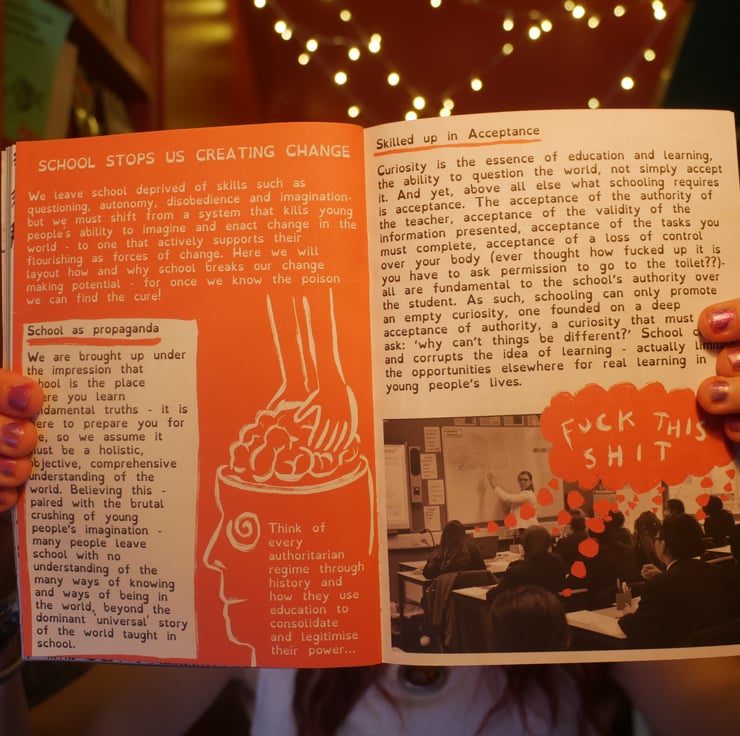 SCHOOL STOPS US CREATING CHANGE
We leave school deprived of skills such as
questioning, autonomy, disobedience and imagination-
but we must shift from a system that kills young
people's ability to imagine and enact change in the
world - to one that actively supports their
flourishing as forces of change. Here we will
layout how and why school breaks our change
making potential - for once we know the poison
we can find the cure!
School as propaganda
We are brought up under
the impression that
hool is the place
ere you learn
ndamental truths - it is
ere to prepare you for
e, so we assume it
ust be a holistic,
bjective, comprehensive
nderstanding of the
world. Believing this -
paired with the brutal
crushing of young
people's imagination -
many people leave
school with no
understanding of the
many ways of knowing
and ways of being in
the world, beyond the
dominant 'universal' story
of the world taught in
school.
Think of
every
authoritarian
regime through
history and
how they use
education to
consolidate
and legitimise
their power...
Skilled up in Acceptance
Curiosity is the essence of education and learning,
the ability to question the world, not simply accept
it. And yet, above all else what schooling requires
is acceptance. The acceptance of the authority of
the teacher, acceptance of the validity of the
information presented, acceptance of the tasks you
must complete, acceptance of a loss of control
over your body (ever thought how fucked up it is
you have to ask permission to go to the toilet??)-
all are fundamental to the school's authority over
the student. As such, schooling can only promote
an empty curiosity, one founded on a deep
acceptance of authority, a curiosity that must
ask: 'why can't things be different?' School
and corrupts the idea of learning - actually
the opportunities elsewhere for real learning in
young people's lives.
FUCK THIS
SHIT